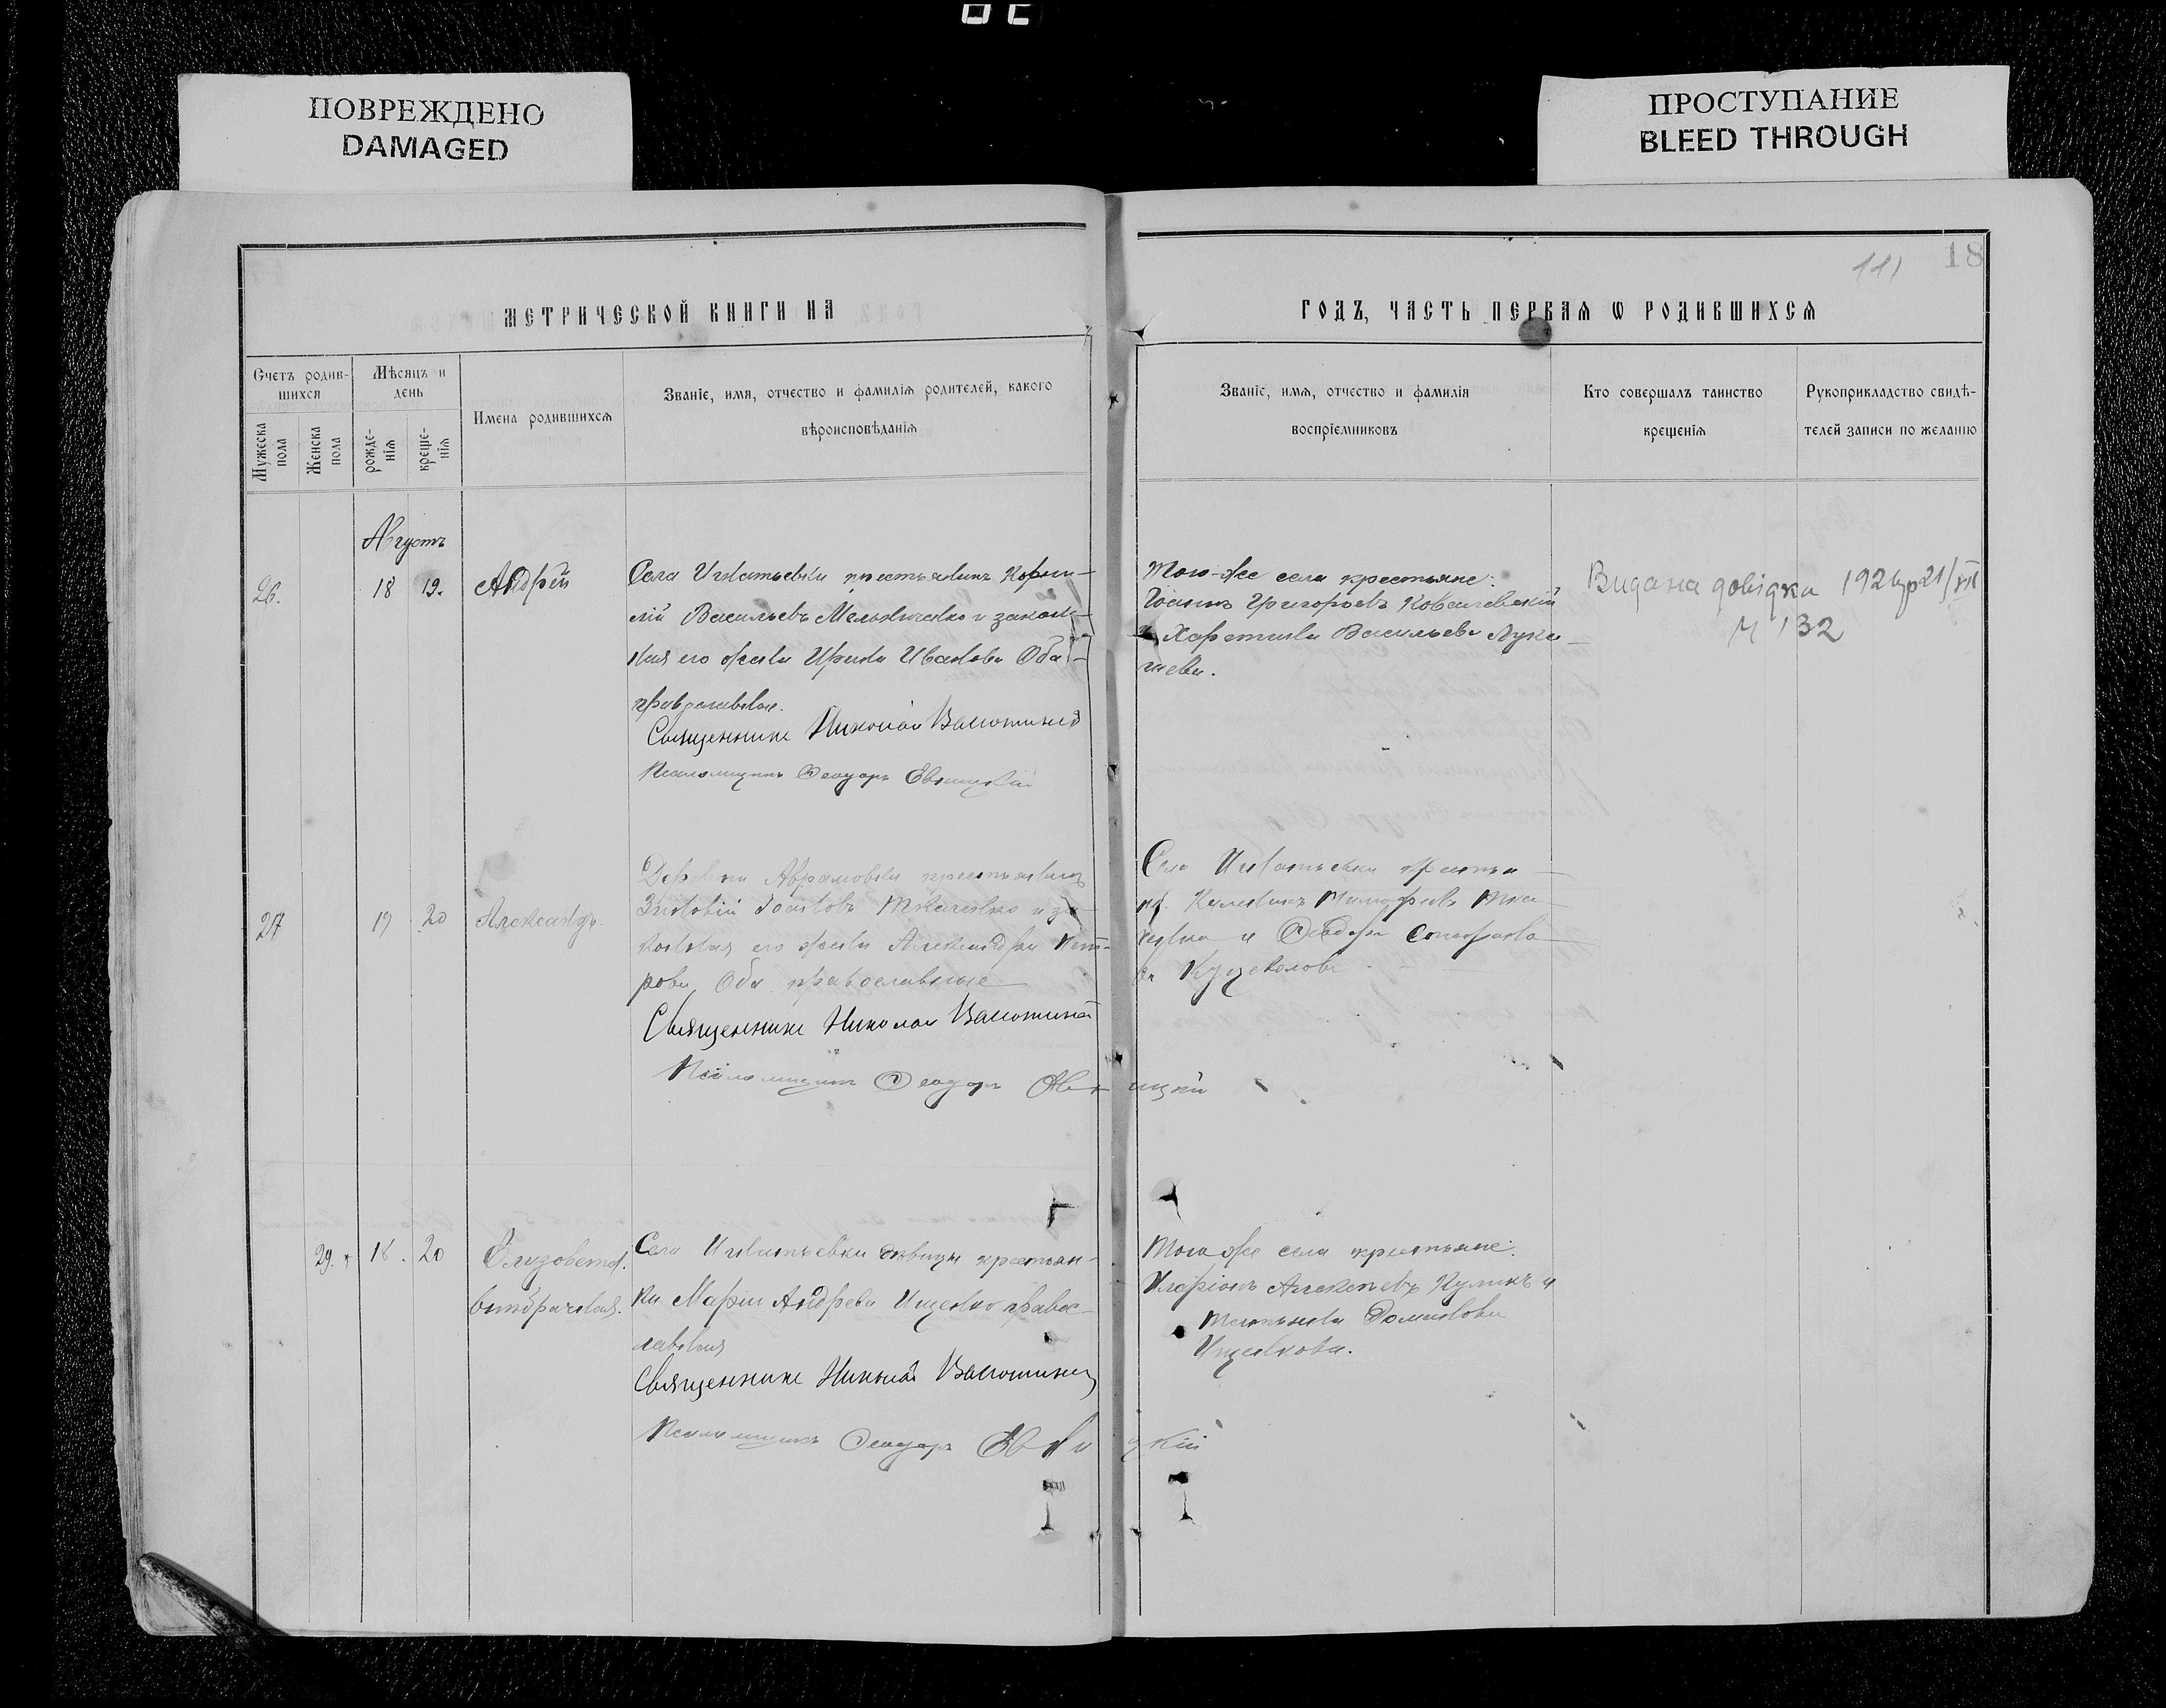 ПОВРЕЖДЕНО
DAMAGED
ПРОСТУПАНИЕ
BLEED THROUGH
111 18
МЕТРИЧЕСКОЙ КНИГИ НА
ГОДЪ, ЧАСТЬ ПЕРВАЯ Ѡ РОДИВШИХСЯ
Счетъ родив-
шихся
Мужеска
пола
Женска
пола
Мѣсяцъ и
день
рожде-
нія
креще-
нія
Имена родившихся
Званіе, имя, отчество и фамилія родителей, какого
вѣроисповѣданія
Званіе, имя, отчество и фамилія
воспріемниковъ
Кто совершалъ таинство
крещенія
Рукоприкладство свидѣ-
телей записи по желанію
Августъ
26. 18 19. Андрей
Села Игнатьевки крестьянинъ Корни-
лій Васильевъ Мельниченко и закон-
ная его жена Ирина Иванова Оба
православные.
Священникъ Николай
Псаломщикъ Ѳеодоръ
Того-же села крестьяне:
Іоаннъ Григорьевъ Ковалевскій
и Харитина Васильева Лука-
шева.
Видана довідка 1924р 21/VII
Ч 132
27 19 20 Александръ.
Деревни Аврамовки крестьянинъ
Зиновій Іоановъ Ткаченко и за-
конная его жена Александра Пет-
рова Оба православные
Священникъ Николай
Псаломщикъ Ѳеодоръ
Села Игнатьевки крестья
Тка
ченко и Ѳеодора
29. 18. 20 Елизовета.
внѣбрачная.
Села Игнатьевки дѣвица крестьян-
ка Марія Андреева Ищенко правос-
лавная
Священникъ Николай
Псаломщикъ Ѳеодоръ
Того же села крестьяне:
Иларіонъ Алексѣевъ Куликъ и
Татьяна Доманова
Ищенкова.